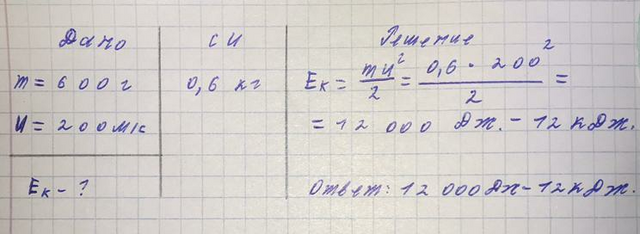 Дано
СИ
Решение
m = 600 г
0,6 кг
Eк = mu²/2 = 0,6 · 200²/2 =
u = 200 м/с
= 12 000 Дж. - 12 кДж.
Eк - ?
Ответ: 12 000 Дж - 12 кДж.